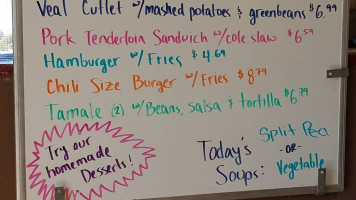 Veal Cutlet w/mashed potatoes & greenbeans $6.99
Pork Tenderloin Sandwich w/cole slaw $6.59
Hamburger w/Fries $4.69
Chili Size Burger w/Fries $8.79
Tamale (2) w/Beans, salsa & tortilla $6.79
Try our
homemade
Desserts!
Today's
Soups:
Split Pea
-OR-
Vegetable